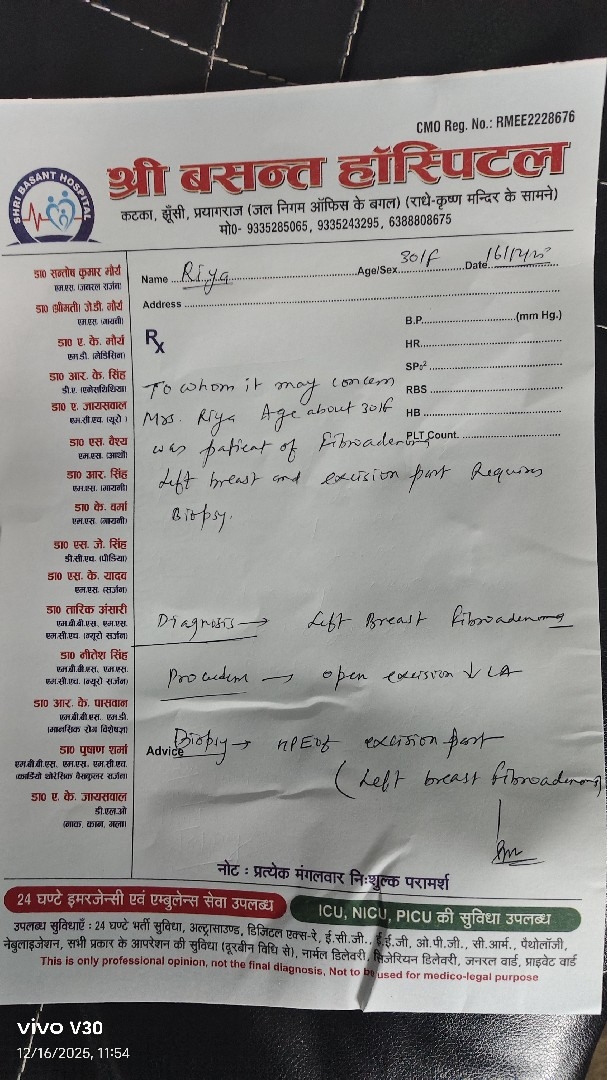 CMO Reg. No.: RMEE2228676
SHRI BASANT HOSPITAL
श्री बसन्त हॉस्पिटल
कटका, झूँसी, प्रयागराज (जल निगम ऑफिस के बगल) (राधे-कृष्ण मन्दिर के सामने)
मो0- 9335285065, 9335243295, 6388808675
Name Riya Age/Sex 30/F Date
Address
डा0 सन्तोष कुमार मौर्य
एम.एस. (जनरल सर्जन)
डा0 (श्रीमती) जे.डी. मौर्य
एम.एस. (गायनी)
डा0 ए. के. मौर्य
एम.डी. (मेडिसिन)
डा0 आर. के. सिंह
डी.ए. (एनेसथिसिया)
डा0 ए. जायसवाल
एम.सी.एच. (यूरो)
डा0 एस. वैश्य
एम.एस. (आर्थो)
डा0 आर. सिंह
एम.एस. (गायनी)
डा0 के. वर्मा
एम.एस. (गायनी)
डा0 एस. जे. सिंह
डी.सी.एच. (पीडिया)
डा0 एस. के. यादव
एम.एस. (सर्जन)
डा0 तारिक अंसारी
एम.बी.बी.एस. एम.एस.
एम.सी.एच. (न्यूरो सर्जन)
डा0 नीतेश सिंह
एम.बी.बी.एस. एम.एस.
एम.सी.एच. (न्यूरो सर्जन)
डा0 आर. के. पासवान
एम.बी.बी.एस. एम.डी.
(मानसिक रोग विशेषज्ञ)
डा0 पूषाण शर्मा
एम.बी.बी.एस. एम.एस. एम.सी.एच.
(कार्डियो थोरेसिक वैसकुलर सर्जन)
डा0 ए. के. जायसवाल
डी.एल.ओ
(नाक, कान, गला)
Rx
B.P. (mm Hg.)
HR.
SPo²
RBS
HB
PLT Count.
To whom it may concern
Mrs. Riya Age about 30/F
was patient of Fibroadenoma
Left breast and excision part Requires
Biopsy.
Diagnosis → Left Breast Fibroadenoma
Procedure → open excision ↓ LA
Advice
Biopsy → HPE of excision part
(Left breast fibroadenoma)
नोट : प्रत्येक मंगलवार निःशुल्क परामर्श
24 घण्टे इमरजेन्सी एवं एम्बुलेन्स सेवा उपलब्ध
ICU, NICU, PICU की सुविधा उपलब्ध
उपलब्ध सुविधाएँ : 24 घण्टे भर्ती सुविधा, अल्ट्रासाउण्ड, डिजिटल एक्स-रे, ई.सी.जी., ई.ई.जी, ओ.पी.जी., सी.आर्म., पैथोलॉजी,
नेबुलाइजेशन, सभी प्रकार के आपरेशन की सुविधा (दूरबीन विधि से), नार्मल डिलेवरी, सिजेरियन डिलेवरी, जनरल वार्ड, प्राइवेट वार्ड
This is only professional opinion, not the final diagnosis, Not to be used for medico-legal purpose
vivo V30
12/16/2025, 11:54